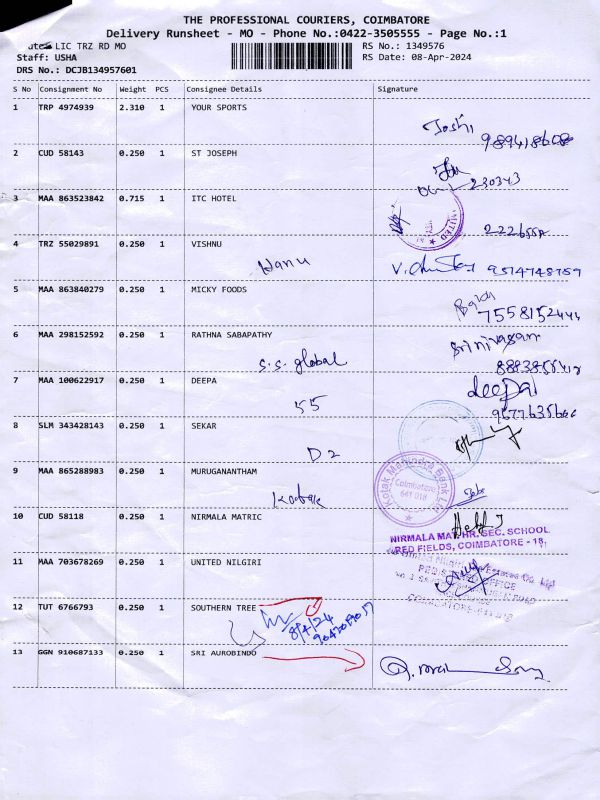 THE PROFESSIONAL COURIERS, COIMBATORE
Delivery Runsheet - MO - Phone No.:0422-3505555 - Page No.:1
LIC TRZ RD MO
RS No.: 1349576
Staff: USHA
RS Date: 08-Apr-2024
DRS No.: DCJB134957601
S No Consignment No Weight PCS Consignee Details Signature
1 TRP 4974939 2.310 1 YOUR SPORTS
Joshi
2 CUD 58143 0.250 1 ST JOSEPH
230343
3 MAA 863523842 0.715 1 ITC HOTEL
4 TRZ 55029891 0.250 1 VISHNU
Hanu
5 MAA 863840279 0.250 1 MICKY FOODS
6 MAA 298152592 0.250 1 RATHNA SABAPATHY
Srinivasan
S.S. global
7 MAA 100622917 0.250 1 DEEPA
deepa
55
8 SLM 343428143 0.250 1 SEKAR
D2
9 MAA 865288983 0.250 1 MURUGANANTHAM
Kotak Mahindra Bank Ltd
Coimbatore
641 018
Kotak
10 CUD 58118 0.250 1 NIRMALA MATRIC
NIRMALA MAT. HR. SEC. SCHOOL
RED FIELDS, COIMBATORE - 18.
11 MAA 703678269 0.250 1 UNITED NILGIRI
12 TUT 6766793 0.250 1 SOUTHERN TREE
8/4/24
13 GGN 910687133 0.250 1 SRI AUROBINDO